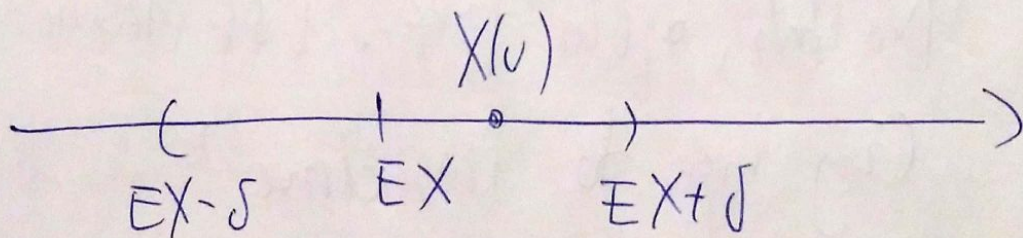 X(ω)
EX-δ EX EX+δ